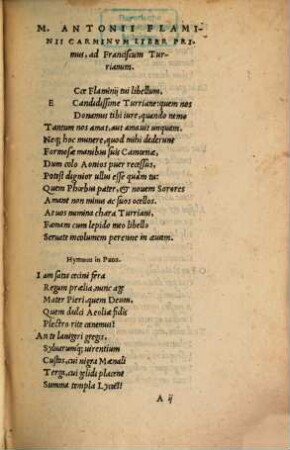 M. ANTONII FLAMI-
NII CARMINVM LIBER PRI-
mus, ad Franciscum Tur-
rianum.
Cce Flaminij tui libellum,
E Candidissime Turriane: quem nos
Donamus tibi iure, quando nemo
Tantum nos amat, aut amauit unquam.
Neq; hoc munere, quod mihi dederunt
Formosæ manibus suis Camœnæ,
Dum colo Aonios puer recessus,
Potest dignior ullus esse quàm tu:
Quem Phœbus pater, & nouem Sorores
Amant non minus ac suos ocellos.
At uos numina chara Turriani,
Famam cum lepido meo libello
Seruate incolumem perenne in æuum.
Hymnus in Pana.
I am satis cecini fera
Regum prælia, nunc age
Mater Pieri, quem Deum,
Quem dulci Aeoliæ fidis
Plectro rite canemus?
An te lanigeri gregis,
Syluarumq; uirentium
Custos, cui nigra Mænali
Terga, cui gelidi placent
Summa templa Lycæi?
A ij